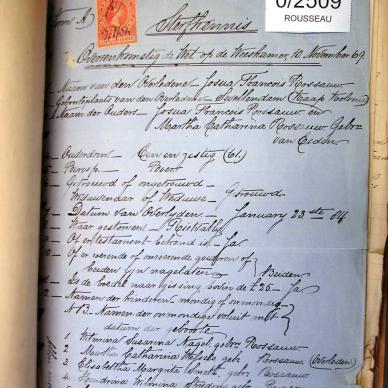 0/2509
ROUSSEAU
Form A
Sterfkennis
Overeenkomstig de Wet op de Weeskamer, 10 November 69
Naam van den Overledene – Josua Francois Rossauw
Geboorteplaats van den Overledene – Swellendam (Kaap Kolonie)
Naam der Ouders – Josua Francois Rossauw en
Martha Catharina Rossauw Gebor
van Eeden
Ouderdom – Een en zestig (61.)
Beroep – Boer
Getrouwd of ongetrouwd –
Weduwenaar of Weduwe – Getrouwd
Datum van Overlyden – January 23ste 84
Waar gestorven –
Of er testament bekend is – Ja
Of er roerende of onroerende goederen of
beiden zyn nagelaten – Beiden
Is de boedel naar gissing boven de £25 – Ja
Namen der kinderen mondig of onmondig
NB. Namen der onmondiges voluit met
datum der geboorte
1 Wilmina Susanna Nagel gebr Rossauw
2 Martha Catharina geb. Rossauw (Overleden)
3 Elisabetha Margrita Smith geb. Rossauw
4 Hendrina Wilmina geb. Rossauw